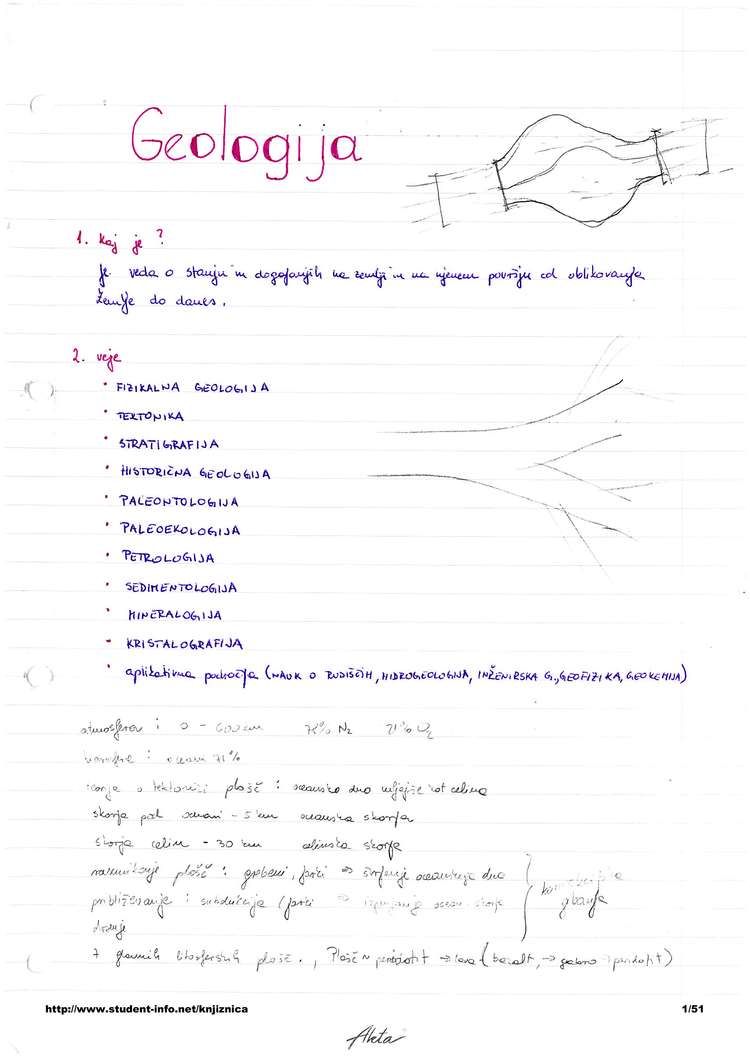 Geologija
1. Kaj je ?
Je veda o stanju in dogajanjih na zemlji in na njenem površju od oblikovanja
Zemlje do danes.
2. veje
• FIZIKALNA GEOLOGIJA
• TEKTONIKA
• STRATIGRAFIJA
• HISTORIČNA GEOLOGIJA
• PALEONTOLOGIJA
• PALEOEKOLOGIJA
• PETROLOGIJA
• SEDIMENTOLOGIJA
• MINERALOGIJA
• KRISTALOGRAFIJA
• aplikativna področja (NAUK O RUDIŠČIH, HIDROGEOLOGIJA, INŽENIRSKA G., GEOFIZIKA, GEOKEMIJA)
atmosfera : 0 - 600 km 78% N2 21% O2
: oceani 71%
o tektoniki plošč : oceansko dno mlajše kot celina
skorja pod oceani - 5 km oceanska skorja
skorja celin - 30 km celinska skorja
razmikanje plošč : grebeni, jarki => širjenje oceanskega dna
približevanje : subdukcija (jarki => ocean. skorje
drsenje
gibanja
7 glavnih litosferskih plošč. , Plošč ~ peridotit → lava (bazalt, → gabro → peridotit)
http://www.student-info.net/knjiznica
1/51
Akta